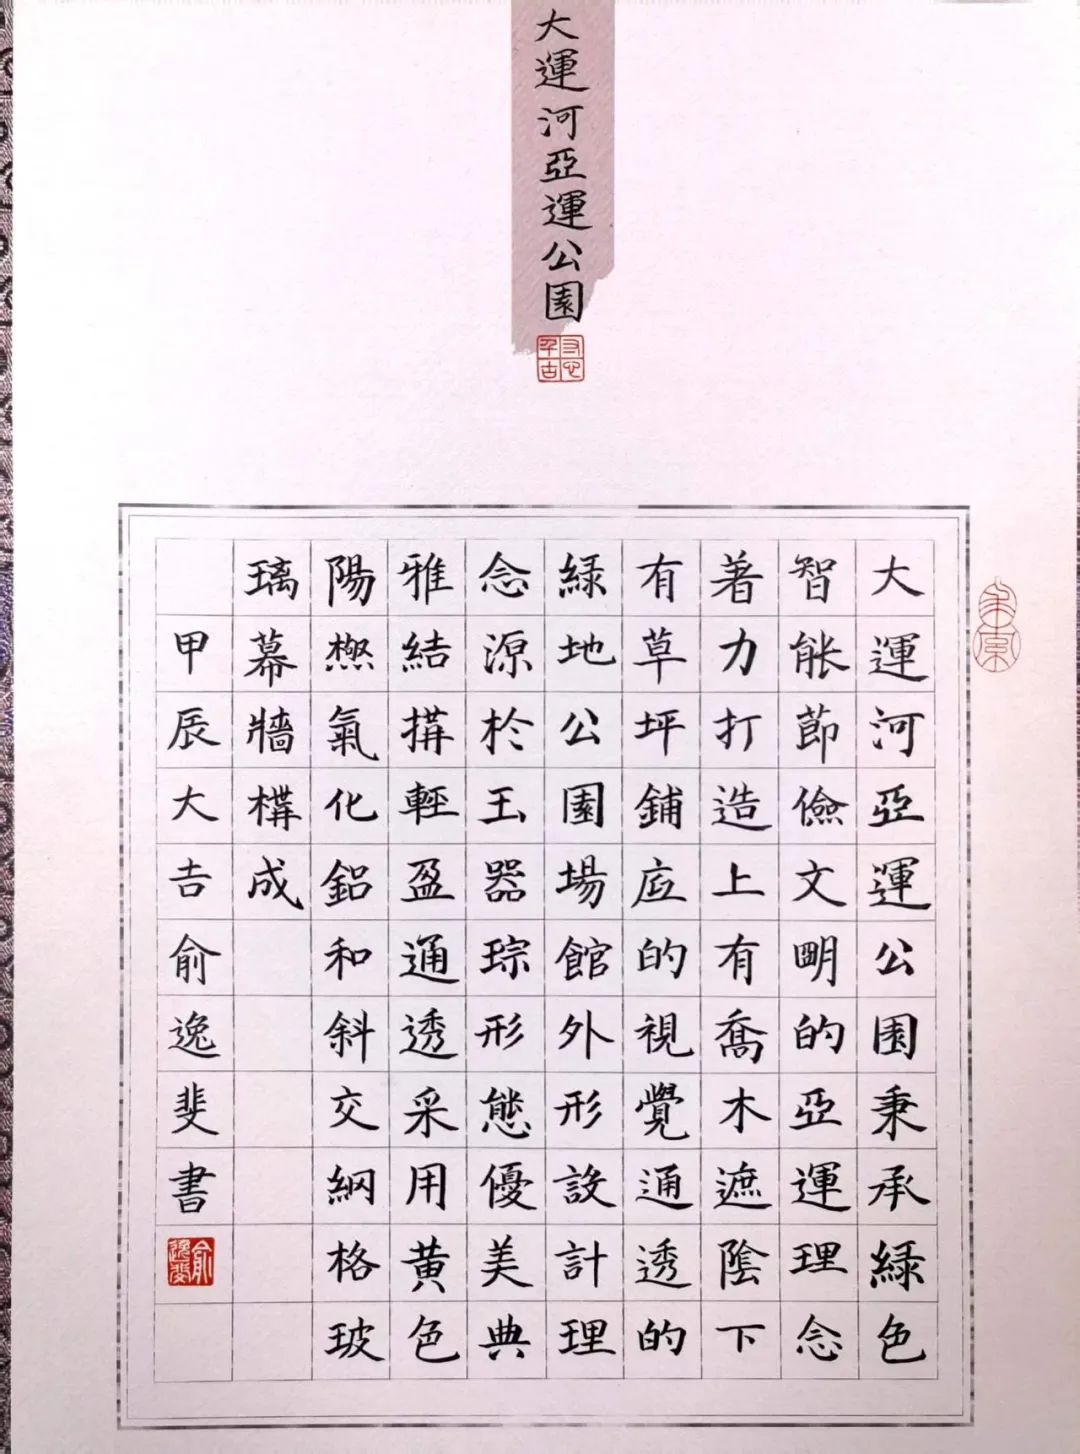 大運河亞運公園
大運河亞運公園秉承綠色
智能節儉文明的亞運理念
著力打造上有喬木遮陰下
有草坪鋪底的視覺通透的
綠地公園場館外形設計理
念源於玉器琮形態優美典
雅結搆輕盈通透采用黃色
陽極氧化鋁和斜交網格玻
璃幕牆構成
甲辰大吉俞逸斐書
俞逸斐